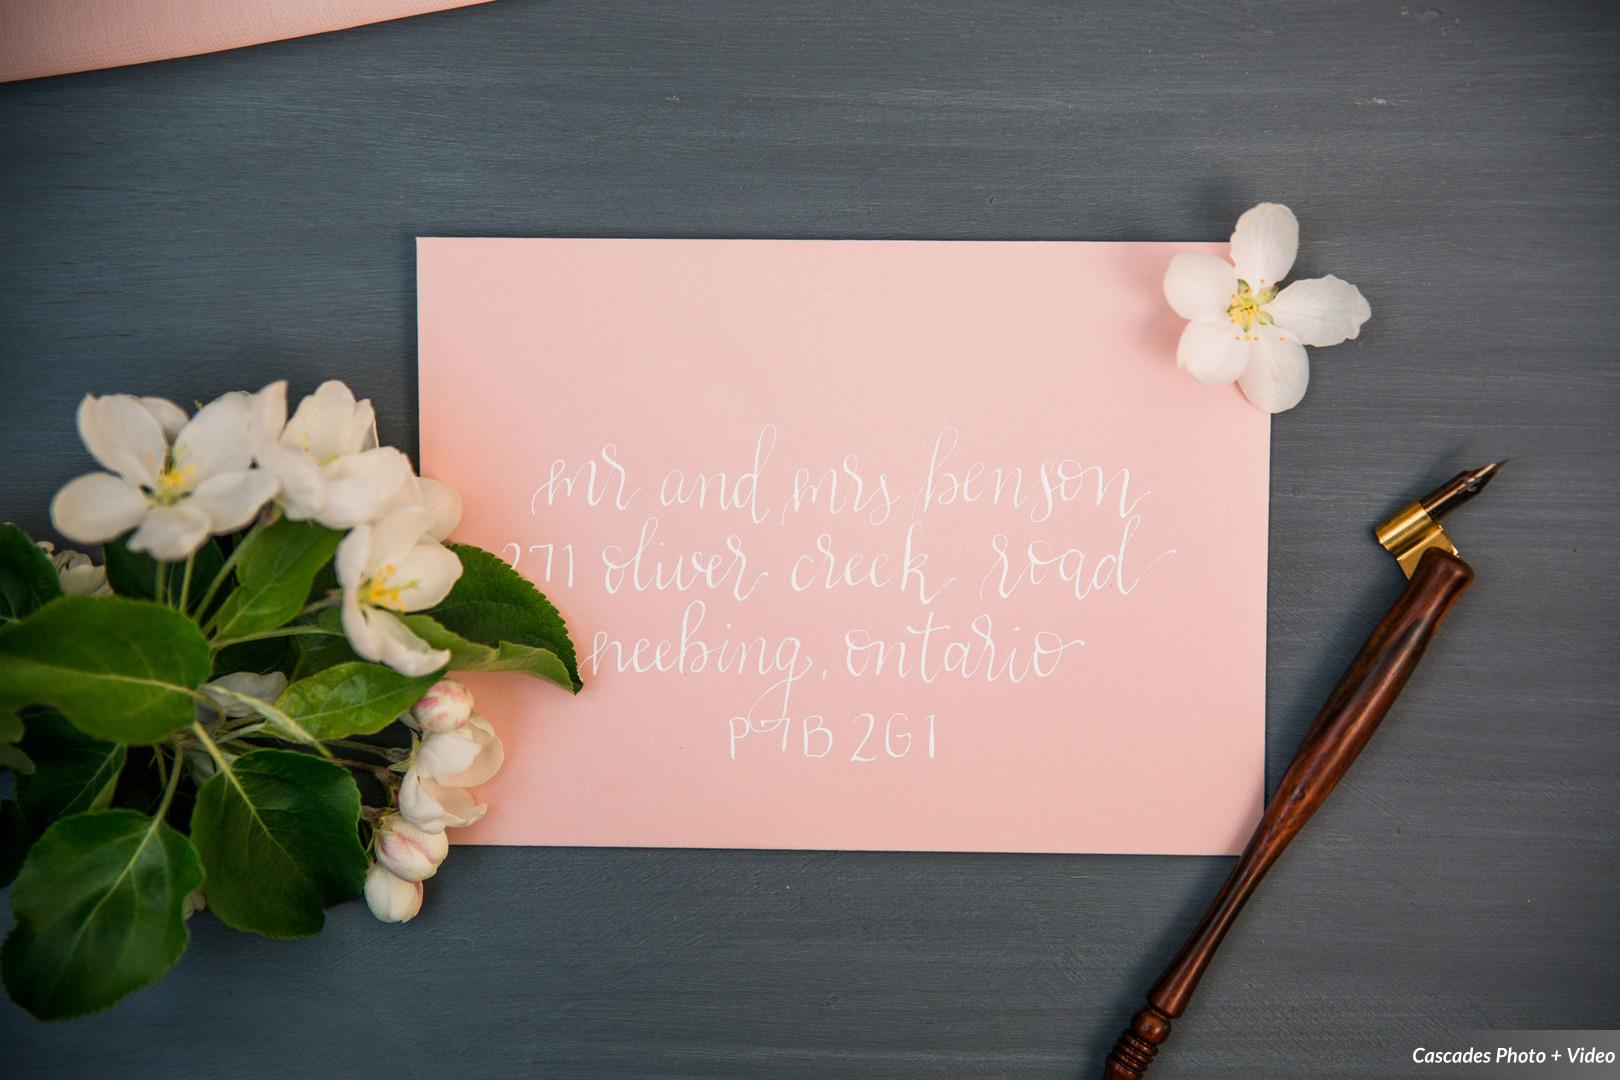 mr and mrs benson
271 oliver creek road
neebing, ontario
P7B 2G1
Cascades Photo + Video